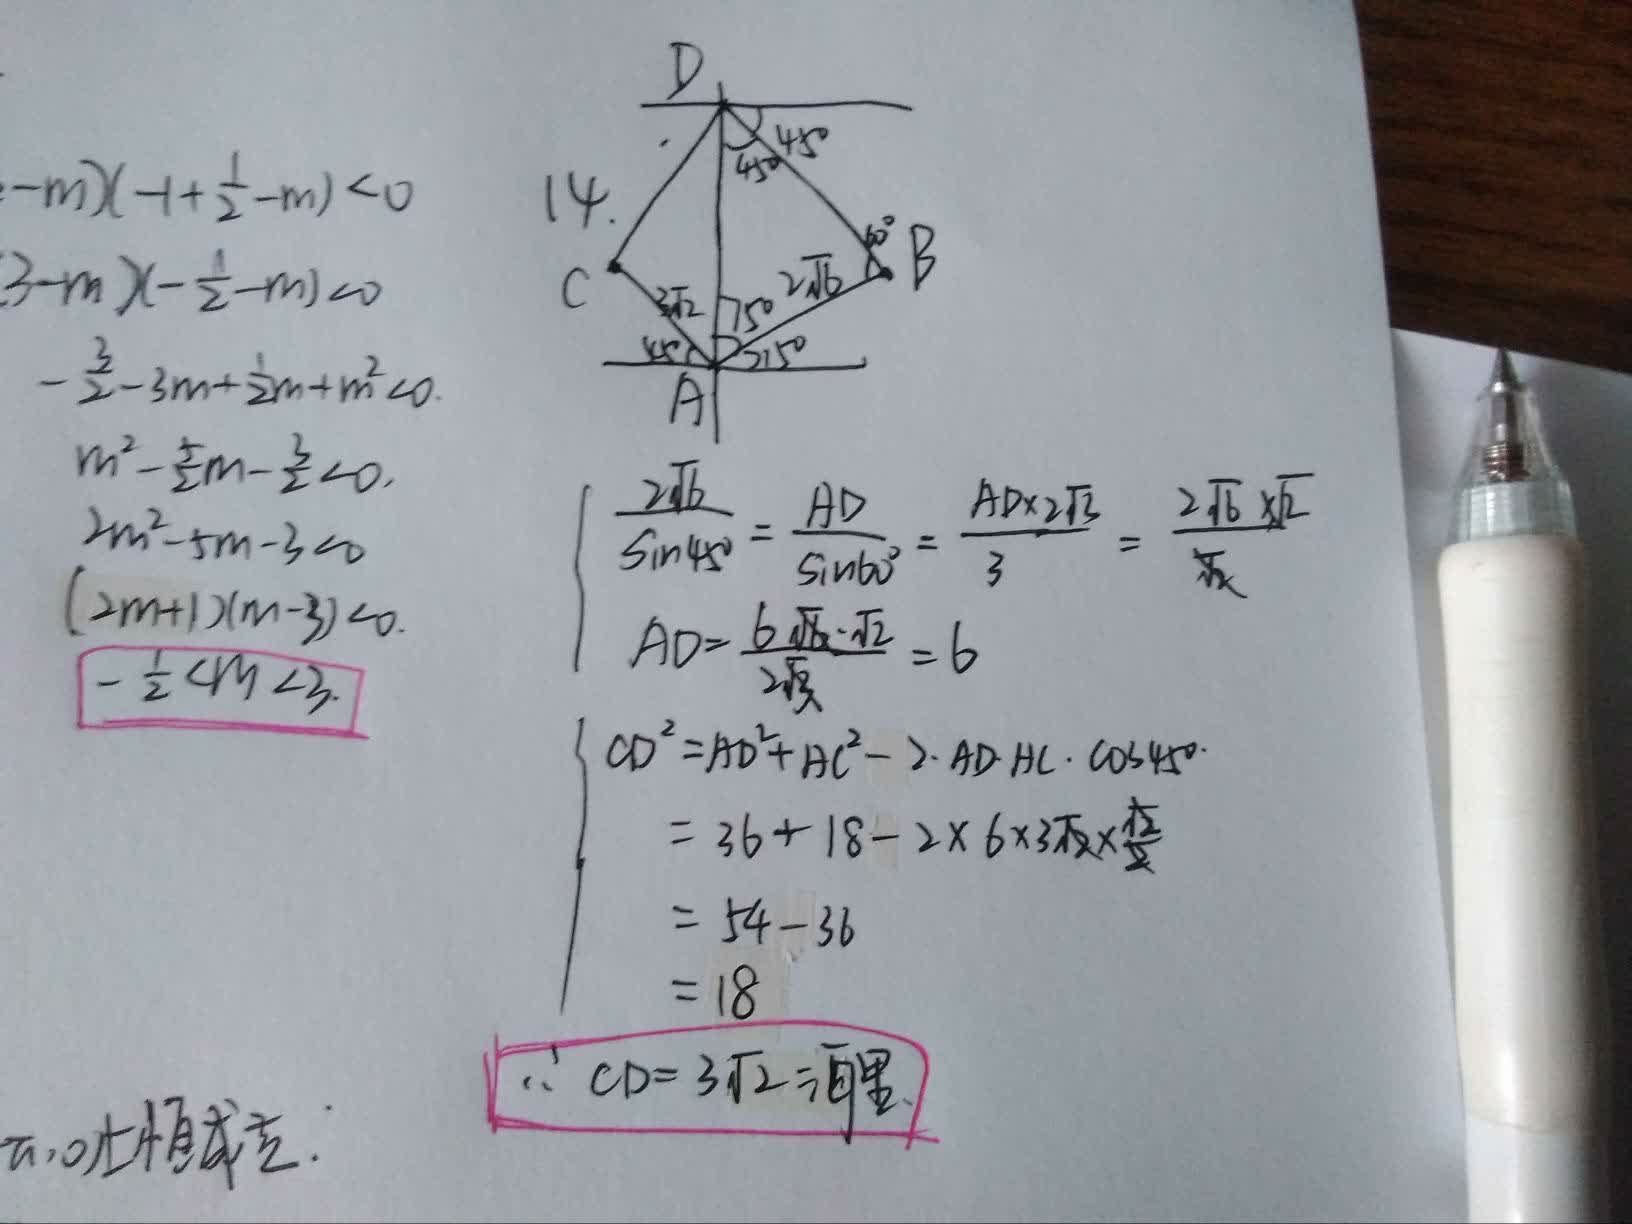 -m)(-1+1/2-m)<0
(3-m)(-1/2-m)<0
-3/2-3m+1/2m+m²<0.
m²-5/2m-3/2<0.
2m²-5m-3<0
(2m+1)(m-3)<0.
-1/2<m<3.
恒成立.
14.
D
45°
45°
C
B
60°
3√2
2√6
75°
45°
15°
A
2√6/sin45° = AD/sin60° = AD×2√3/3 = 2√6×√2/√2
AD= 6√6·√2/2√3 =6
CD²=AD²+AC²-2·AD·AC·cos45°.
=36+18-2×6×3√2×√2/2
=54-36
=18
∴ CD=3√2海里.